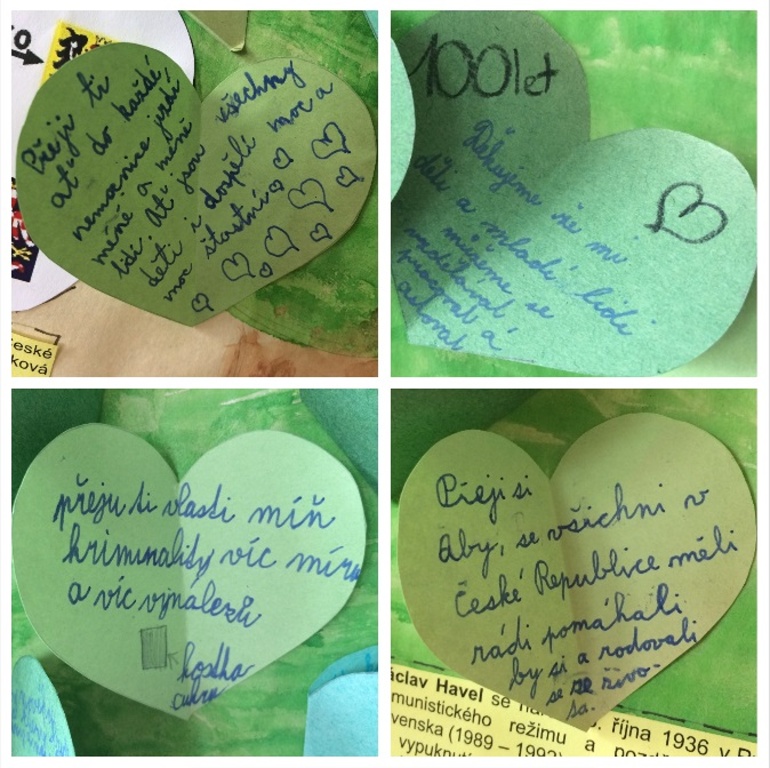 Přeji ti
ať do každé
nemocnice jezdí
méně a méně
lidí. Ať jsou všechny
děti i dospělí moc a
moc šťastní
eské
ková
100let
Děkujeme že my
děti a mladí lidi
můžeme se
vzdělávat
pracovat a
přeju ti vlasti míň
kriminality víc míru
a víc vynalezů
kostka
cukru
Přeji si
aby, se všichni v
České Republice měli
rádi pomáhali
by si a rodovali
se ze živo-
ta.
áclav Havel se na
října 1936 v P
munistického režimu a
venska (1989 – 1992)
vypuknutí